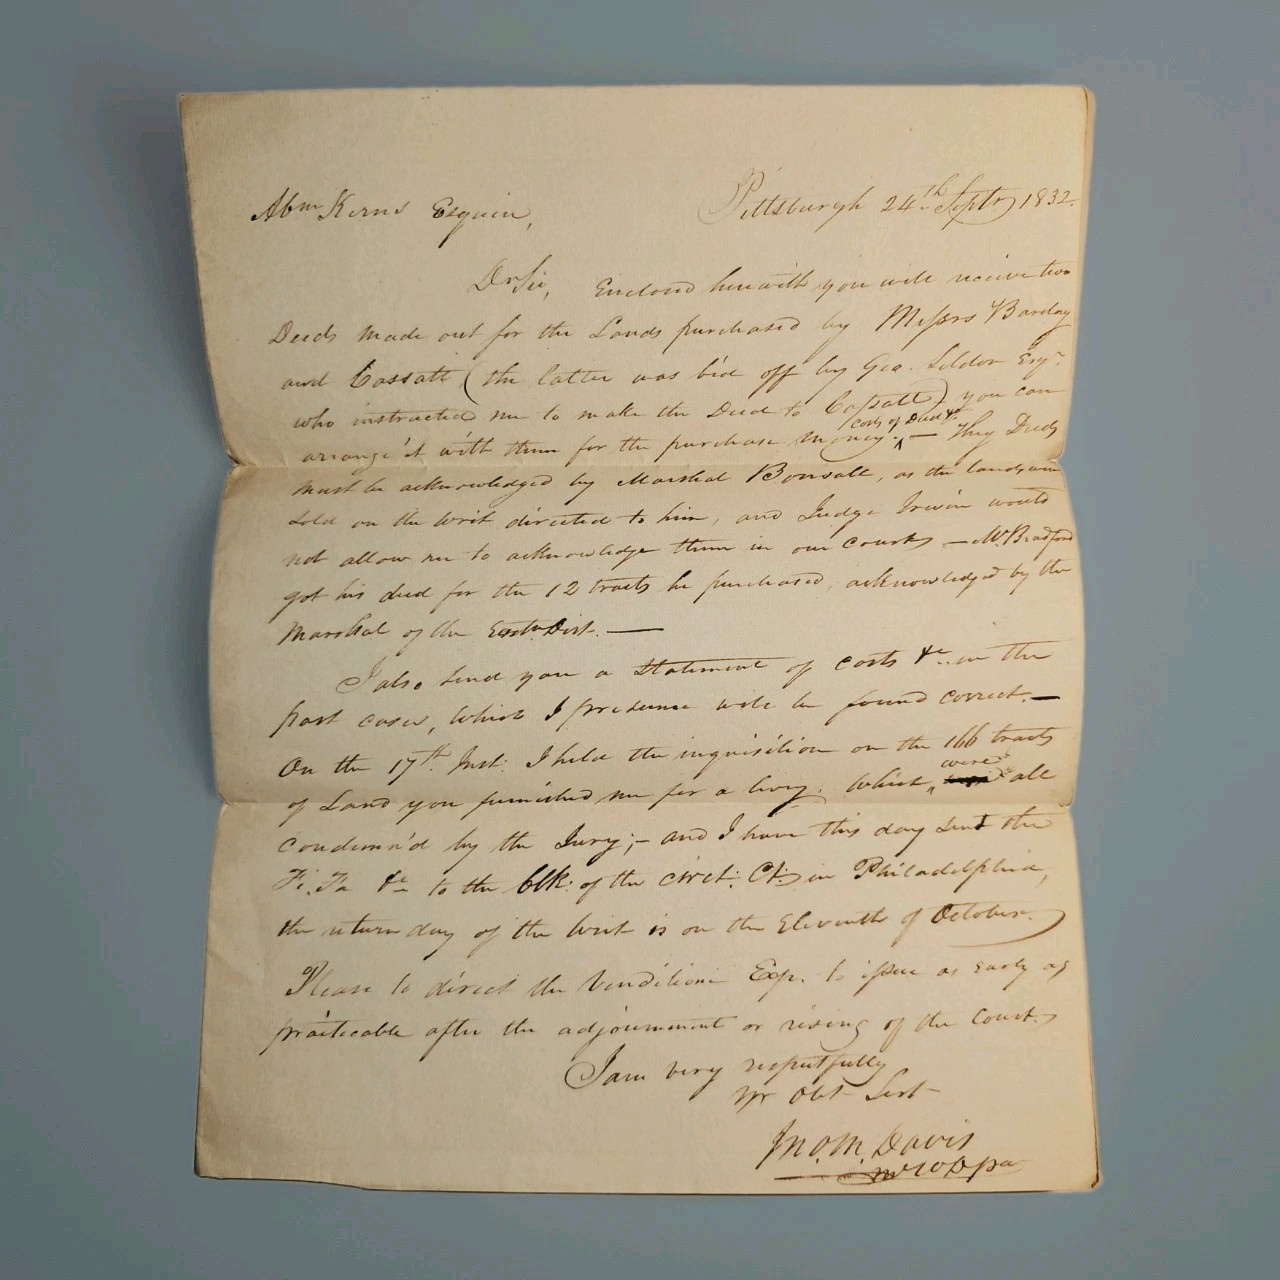 Pittsburgh 24th Septr 1832.
Abm Kerns Esquire,
Dr Sir, Enclosed herewith you will receive two
Deeds made out for the Lands purchased by Messrs Barclay
and Cassatt (the latter was bid off by Geo. Selden Esqr
who instructed me to make the Deed to Cassatt) you can
costs of Deed &c
arrange it with them for the purchase money. ^ — They Deeds
must be acknowledged by Marshal Bonsall, as the lands were
sold on the writ directed to him, and Judge Irwin would
not allow me to acknowledge them in our Court — Mr. Bradford
got his deed for the 12 tracts he purchased, acknowledged by the
Marshal of the Eastn Dist. —
I also send you a Statement of costs &c. in the
past cases, which I presume will be found correct. —
On the 17th Inst. I held the inquisition on the 166 tracts
were
of Land you furnished me for a levy. Which all
condemn'd by the Jury; – and I have this day sent the
Fi. Fa &c to the Clk: of the circt. Ct. in Philadelphia,
the return day of the writ is on the Eleventh of October.
Please to direct the Venditioni Exp. to issue as early as
practicable after the adjournment or rising of the Court.
I am very respectfully
Yr Obt Sert
Jno. M. Davis
M W D pa